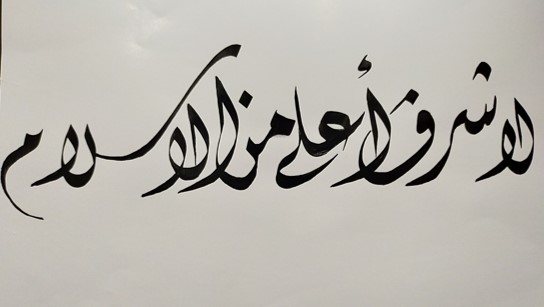 لا شرف أعلى من الاسلام